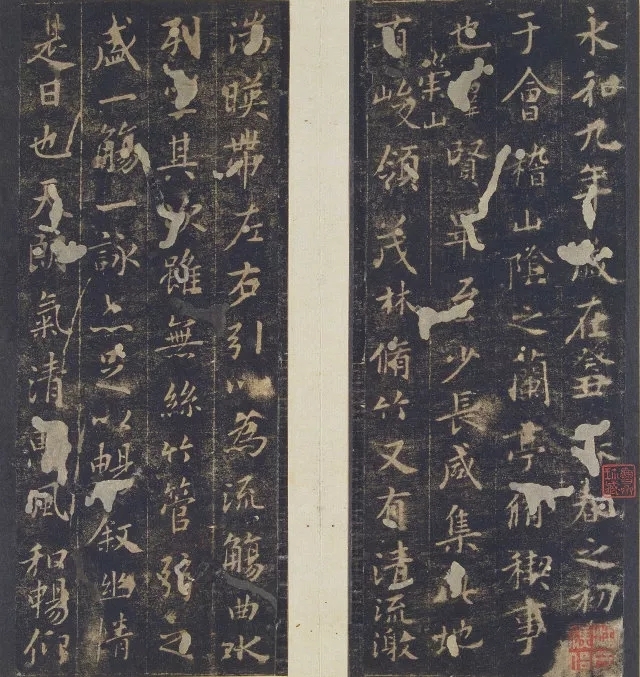 永和九年歲在癸丑春之初
于會稽山陰之蘭亭脩稧事
也羣賢畢至少長咸集此地
有崇山峻領茂林脩竹又有清流激
湍暎帶左右引以為流觴曲水
列坐其次雖無絲竹管弦之
盛一觴一詠亦足以暢敘幽情
是日也天朗氣清惠風和暢仰